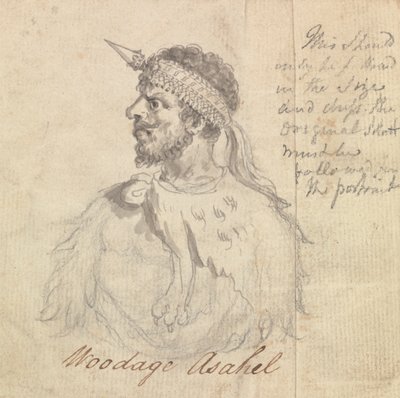 This should
only be
in the size
and dress. the
Original
must be
followed
the portrait
Woodage Asahel